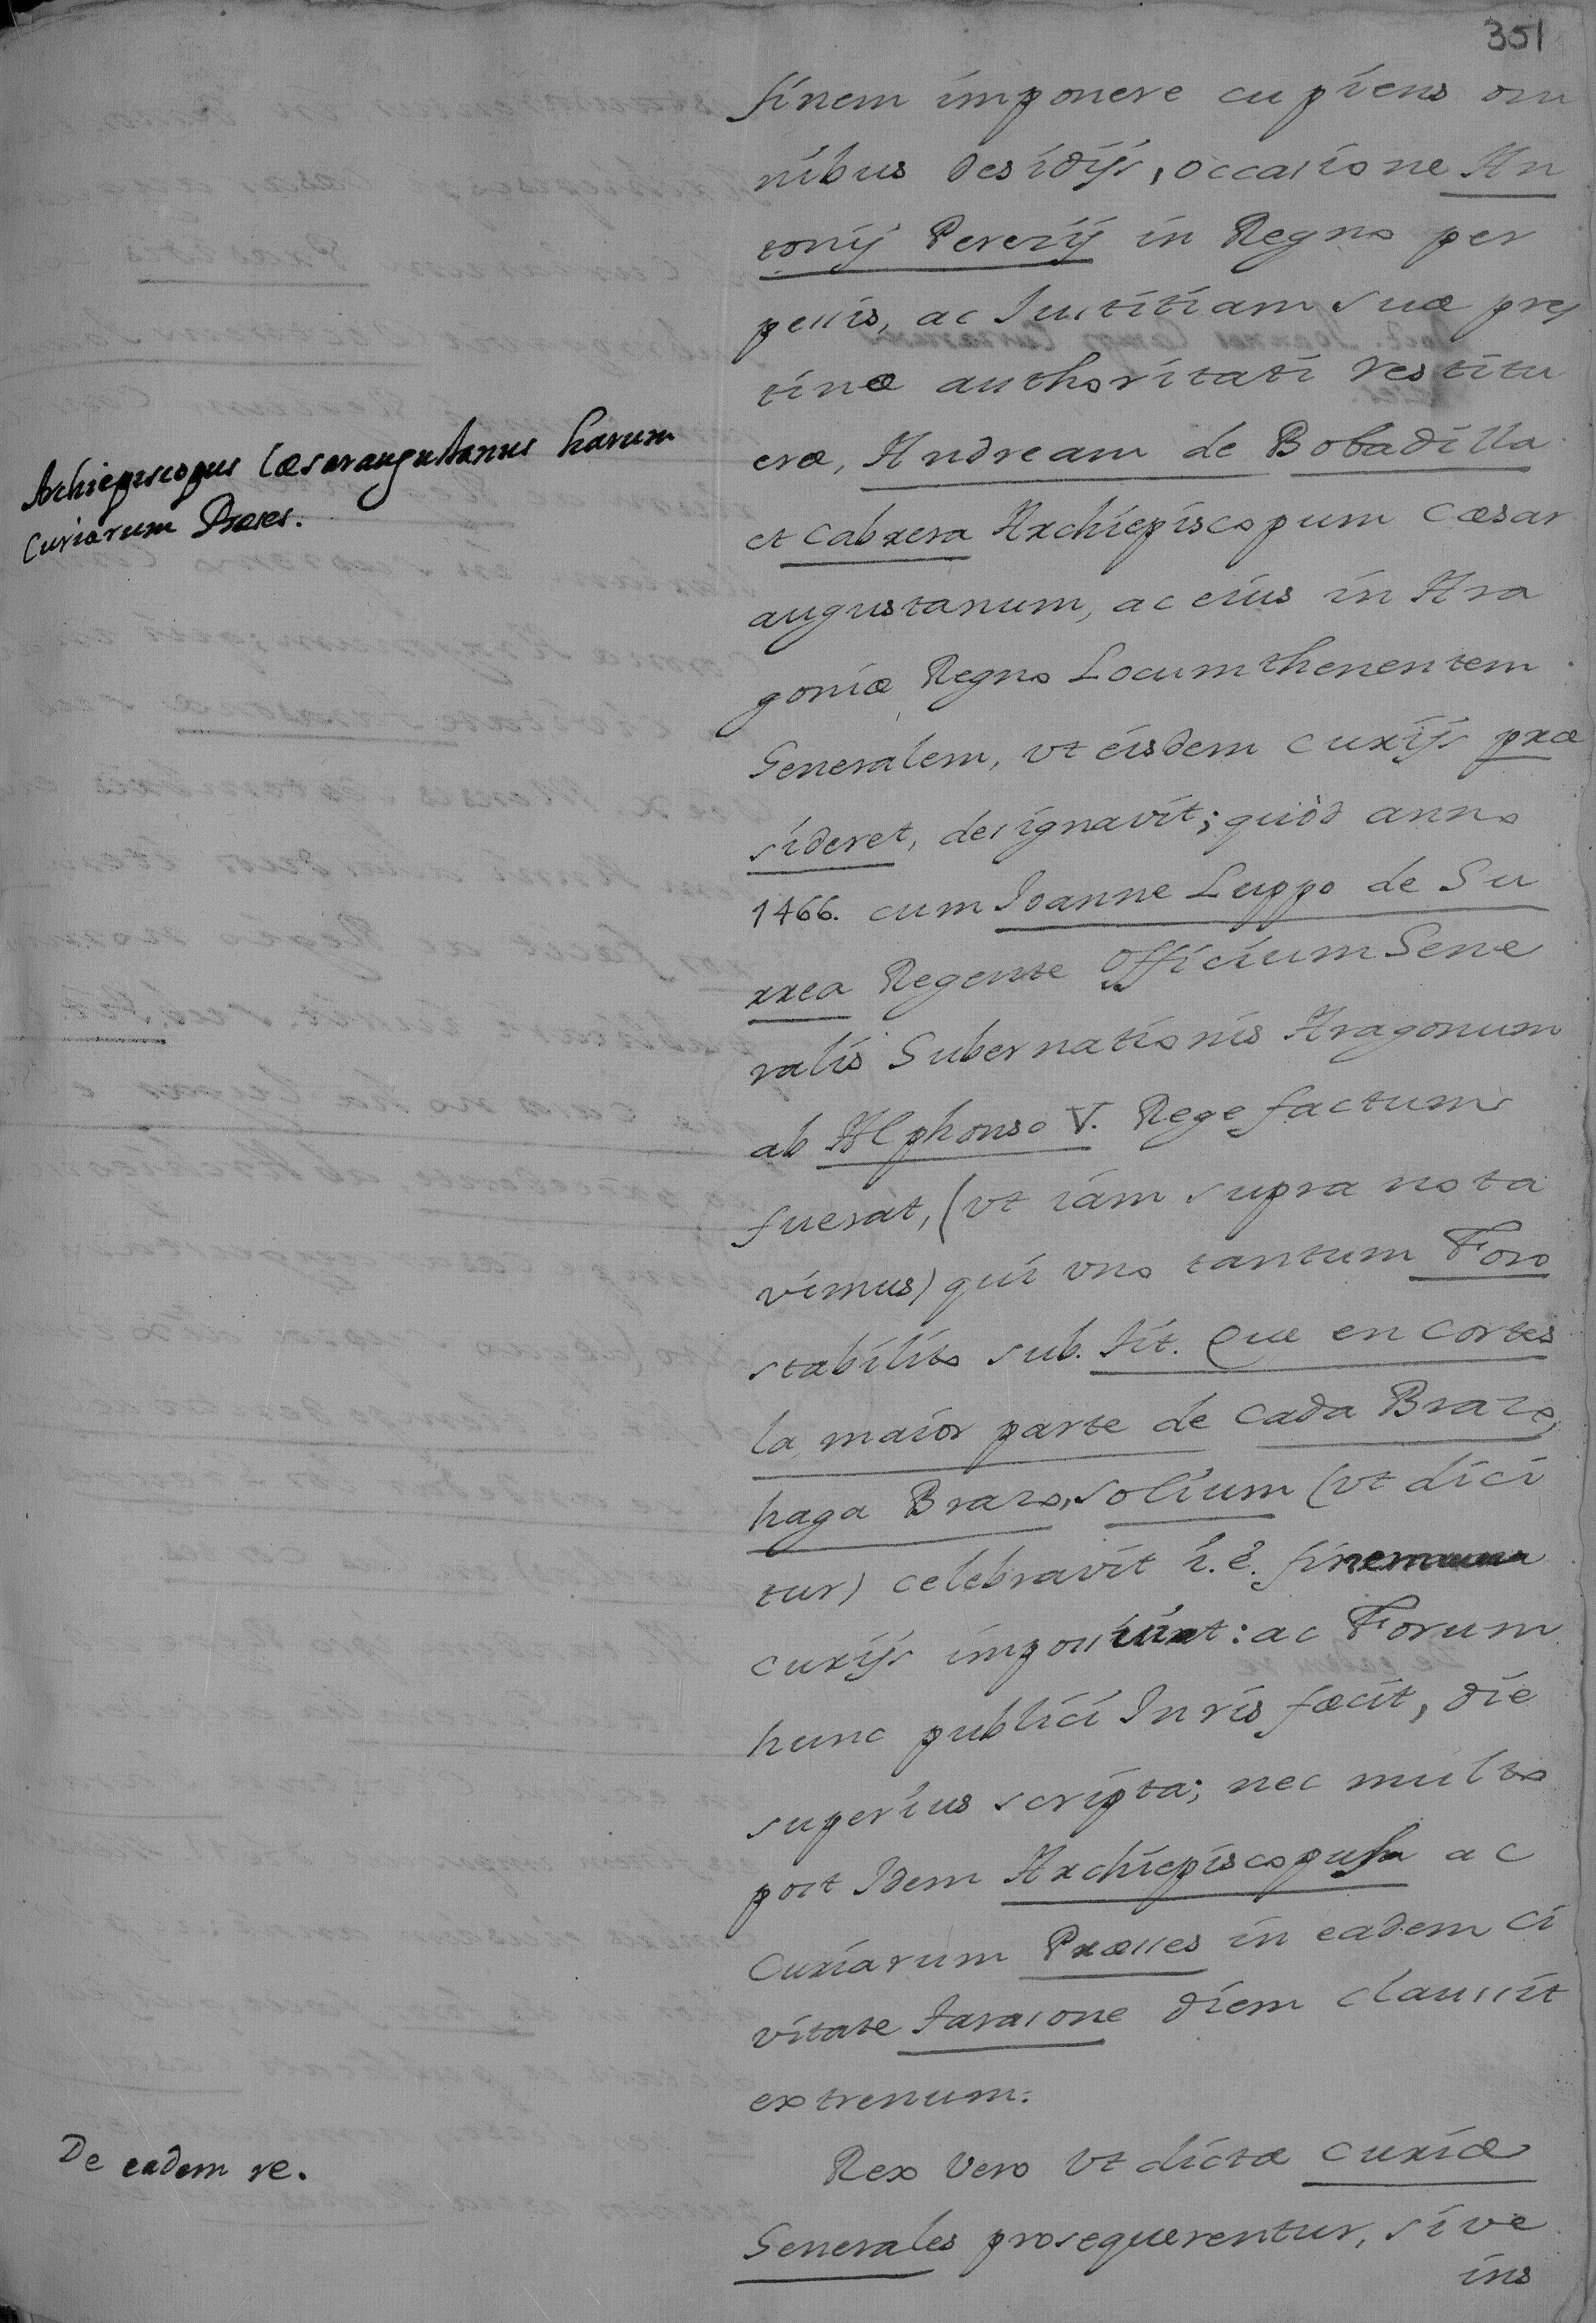 351
finem imponere cupiens om
nibus desidijs, occasione An
tonij Perezij in Regno per
pessis, ac Iustitiam suæ pris
tinæ authoritati restitu
eræ, Andream de Bobadilla
et Cabrera Archiepiscopum Cæsar
augustanum, ac eius in Ara
goniæ Regno Locumthenentem
Generalem, vt eisdem curijs præ
sideret, designavit; quòd anno
1466. cum Ioanne Luppo de Gu
rrea Regente Officium Gene
ralis Gubernationis Aragonum
ab Alphonso V. Rege factum
fuerat, (vt iam supra nota
vimus) qui vno tantum Foro
stabilito sub. tit. Que en Cortes
la maior parte de cada Brazo,
haga Brazo, solium (vt dici
tur) celebravit i.e. finem
curijs : ac Forum
hunc publici Iuris fæcit, die
superius scripta; nec multo
post Idem Archiepiscopus ac
Curiarum Præsses in eadem Ci
vitate Tarasone diem claussit
extrenum.
Rex vero vt dictæ curiæ
Generales prosequerentur, sive
ins
Archiepiscopus Cæsaraugustanus harum
Curiarum Præses.
De eadem re.